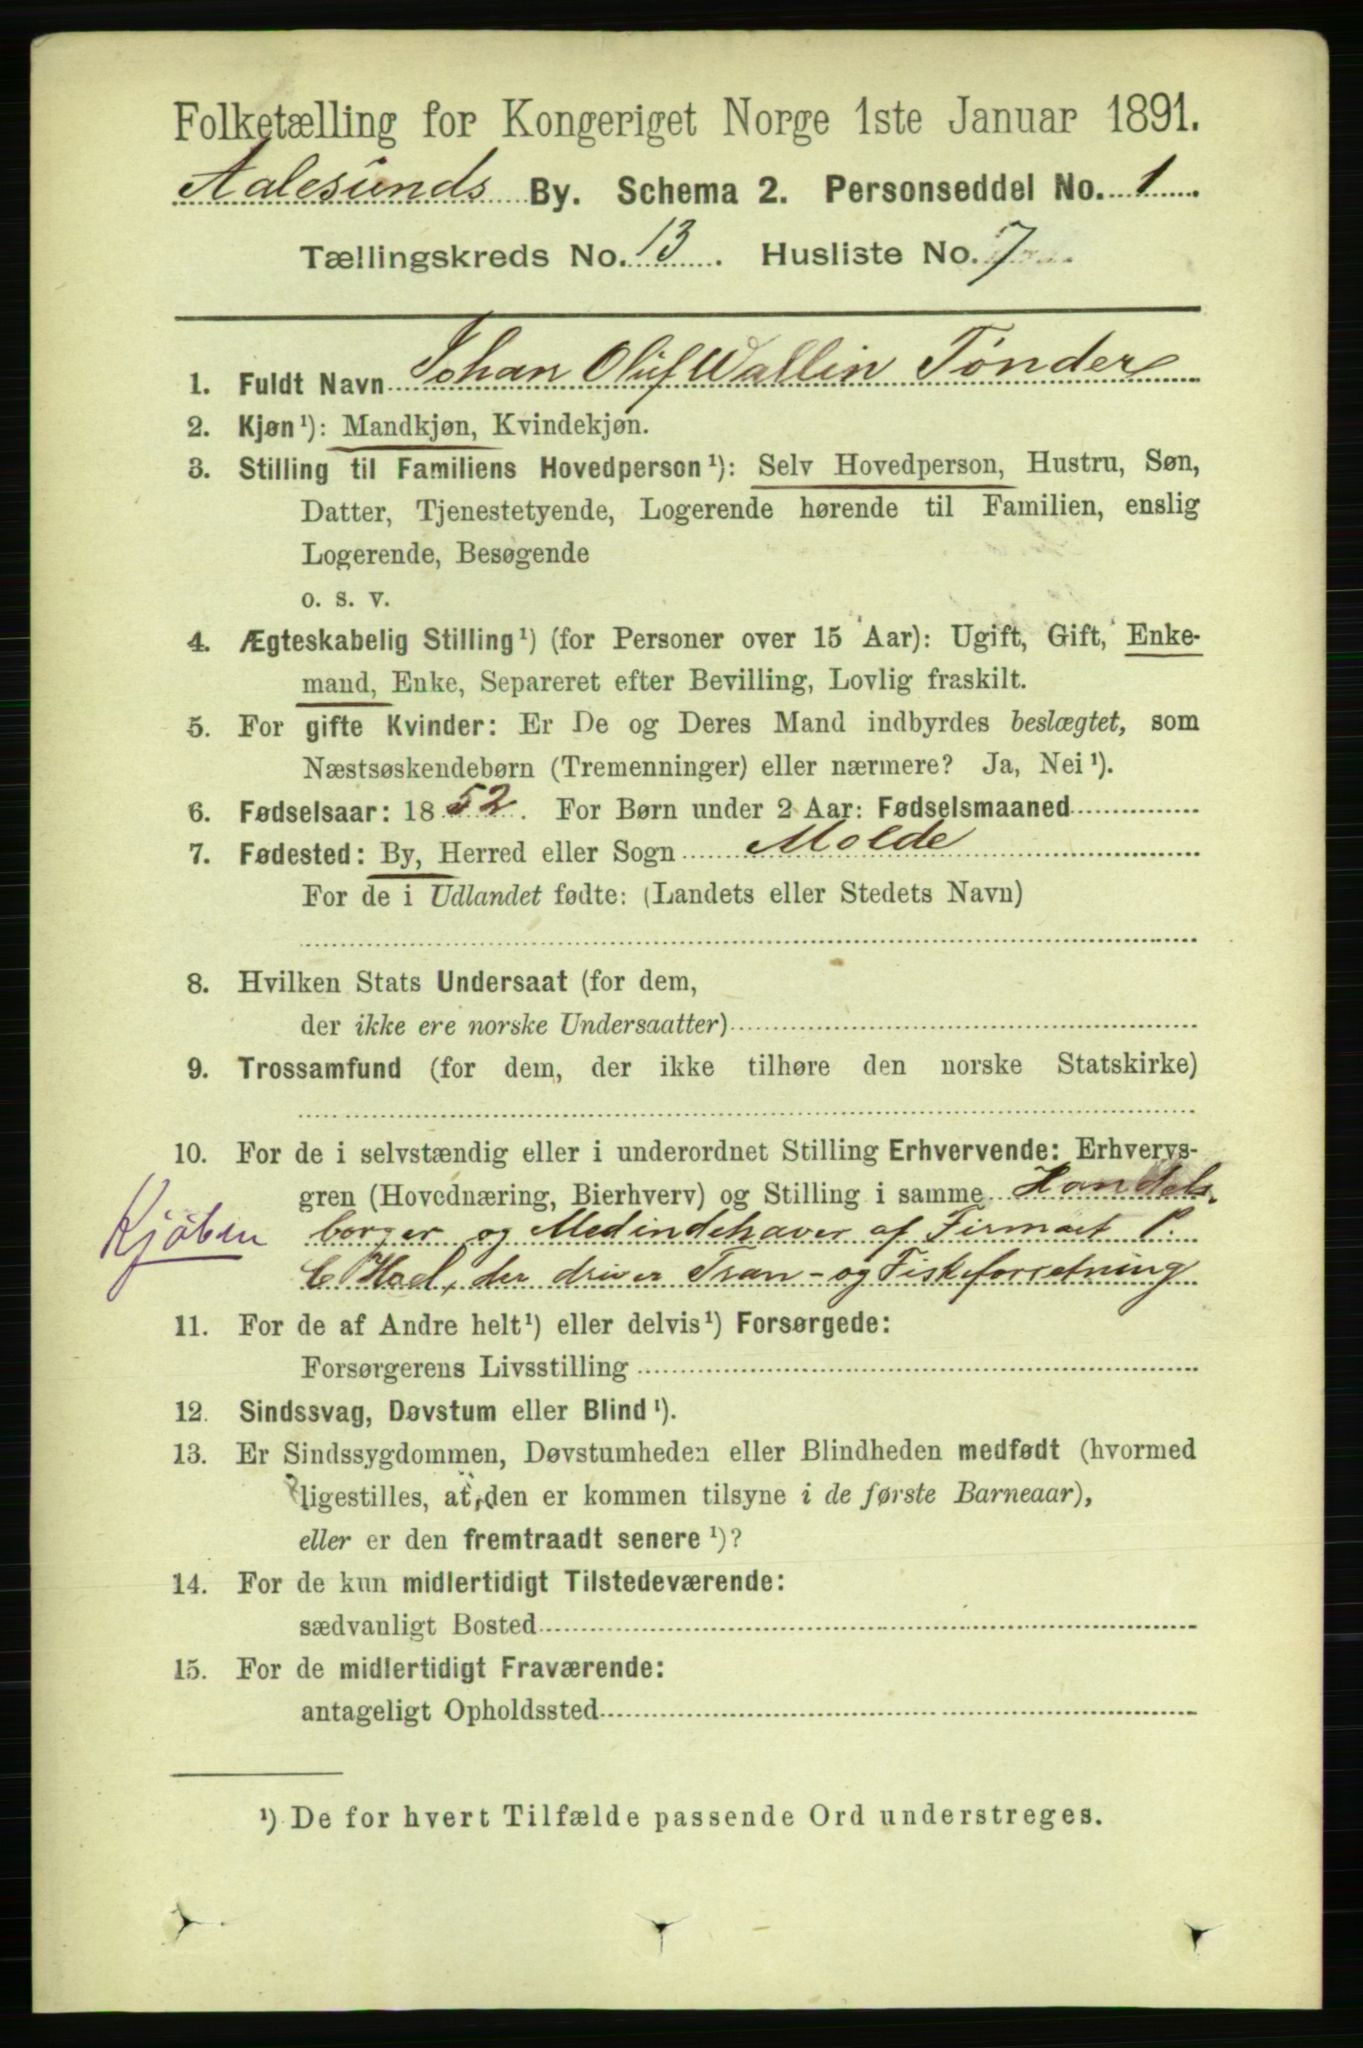 Folketælling for Kongeriget Norge 1ste Januar 1891.
Aalesunds By. Schema 2. Personseddel No. 1
Tællingskreds No. 13. Husliste No. 7
1. Fuldt Navn Johan Oluf Wallin Tønder
2. Kjøn ¹): Mandkjøn, Kvindekjøn.
3. Stilling til Familiens Hovedperson ¹): Selv Hovedperson, Hustru, Søn,
Datter, Tjenestetyende, Logerende hørende til Familien, enslig
Logerende, Besøgende
o. s. v.
4. Ægteskabelig Stilling ¹) (for Personer over 15 Aar): Ugift, Gift, Enke-
mand, Enke, Separeret efter Bevilling, Lovlig fraskilt.
5. For gifte Kvinder: Er De og Deres Mand indbyrdes beslægtet, som
Næstsøskendebørn (Tremenninger) eller nærmere? Ja, Nei ¹).
6. Fødselsaar: 1852. For Børn under 2 Aar: Fødselsmaaned
7. Fødested: By, Herred eller Sogn Molde
For de i Udlandet fødte: (Landets eller Stedets Navn)
8. Hvilken Stats Undersaat (for dem,
der ikke ere norske Undersaatter)
9. Trossamfund (for dem, der ikke tilhøre den norske Statskirke)
10. For de i selvstændig eller i underordnet Stilling Erhvervende: Erhvervs-
gren (Hovednæring, Bierhverv) og Stilling i samme Handels-
Kjøben borger og Medindehaver af Firmaet P.
C. Hoel, der driver Tran- og Fiskeforretning
11. For de af Andre helt ¹) eller delvis ¹) Forsørgede:
Forsørgerens Livsstilling
12. Sindssvag, Døvstum eller Blind ¹).
13. Er Sindssygdommen, Døvstumheden eller Blindheden medfødt (hvormed
ligestilles, at den er kommen tilsyne i de første Barneaar),
eller er den fremtraadt senere ¹)?
14. For de kun midlertidigt Tilstedeværende:
sædvanligt Bosted
15. For de midlertidigt Fraværende:
antageligt Opholdssted
¹) De for hvert Tilfælde passende Ord understreges.